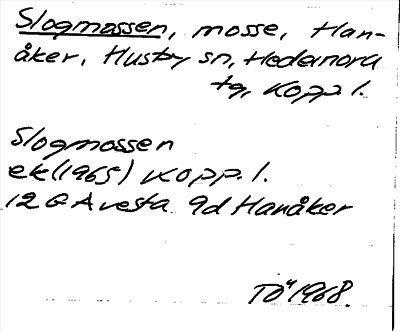 Slogmossen, mosse, Han-
åker, Husby sn, Hedemora
tg, Kopp l.
Slogmossen
ek (1965) Kopp. l.
12 G Avesta 9d Hanåker
TÖ 1968.